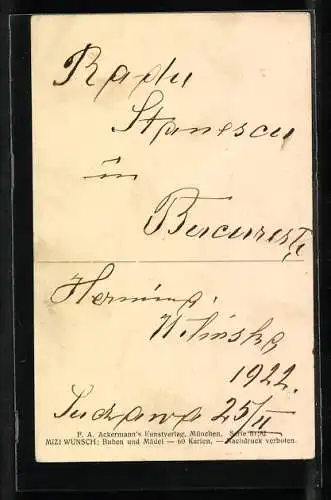 Radu
Stanescu
in
Bucuresti
Hermina
1922.
Suczawa 25/II
F. A. Ackermann's Kunstverlag, München. Serie
MIZI WUNSCH: Buben und Mädel — 60 Karten. — Nachdruck verboten.